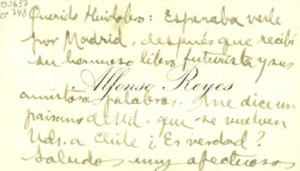 Querido Huidobro: Esperaba verle
por Madrid, después que recibí
su hermoso libro futurista y sus
Alfonso Reyes
amistosas palabras. Me dice un
paisano de Ud. que se vuelven
Uds. a Chile ¿Es verdad?
Saludos muy afectuosos